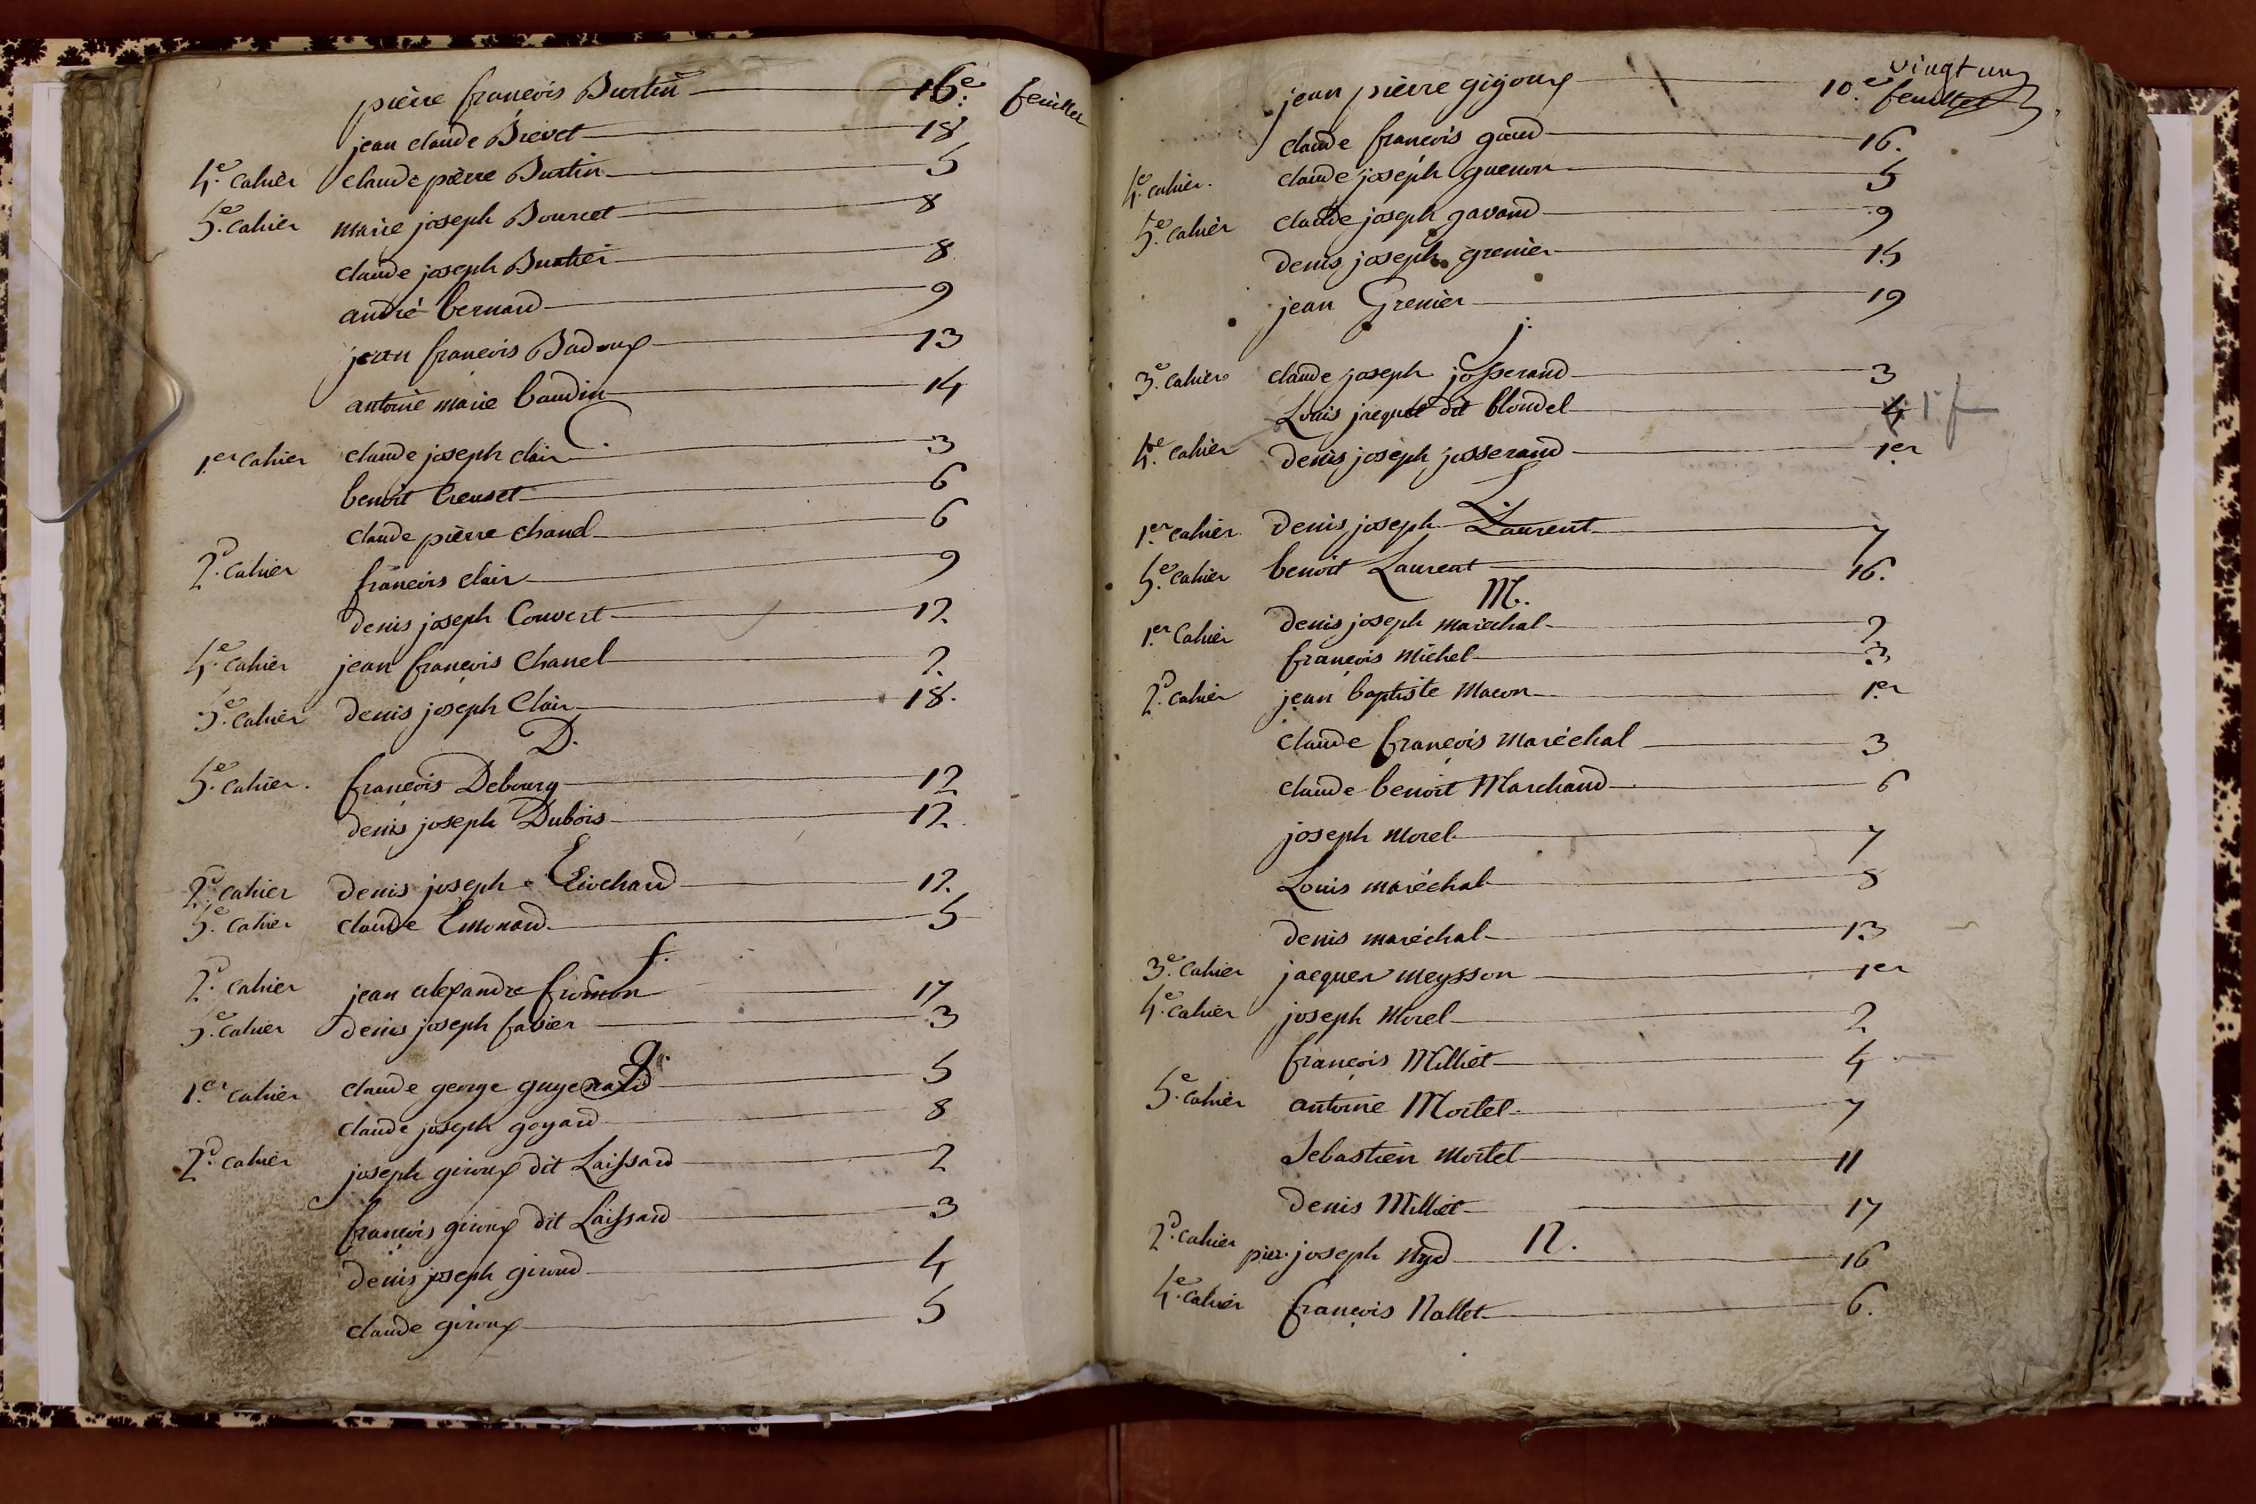 pierre françois Burtin 16.e feuillet
jean claude Brevet 18
4.e Cahier claude pierre Burtin 5
5.e Cahier marie joseph Bourcet 8
claude joseph Burtier 8
andré bernard 9
jean françois Badoux 13
antoine marie baudin 14
C.
1.er Cahier claude joseph clair 3
benoit Creuset 6
claude pierre chanel 6
2.d Cahier françois clair 9
denis joseph Convert 12.
4.e Cahier jean françois Chanel 2.
5.e Cahier denis joseph Clair 18.
D.
5.e Cahier. françois Debourg 12
denis joseph Dubois 12.
E
2.d Cahier denis joseph Eivchard 12.
5.e Cahier claude Emonard 5
f.
2.d Cahier jean alexandre fromon 17
5.e Cahier denis joseph favier 3
g.
1.er Cahier claude george guyenard 5
claude joseph goyard 8
2.d Cahier joseph giroux dit Laissard 2
françois giroux dit Laissard 3
denis joseph giroud 4
claude giroux 5
vingt un
jean pierre gigoux 10.e feuillet
claude françois goud 16.
4.e Cahier. claude joseph guenon 5
5.e Cahier claude joseph gavand 9
denis joseph grenier 15
jean Grenier 19
j.
3.e Cahier claude joseph josserand 3
Louis jaquet dit blondel 4 1.r f
4.e Cahier denis joseph josserand 1.er
L.
1.er Cahier denis joseph Laurent 7
5.e Cahier benoit Laurent 16.
M.
1.er Cahier denis joseph marechal 2
françois Michel 3
2.d Cahier jean baptiste Macon 1.er
claude françois maréchal 3
claude benoit Marchand 6
joseph morel 7
Louis maréchal 8
denis maréchal 13
3.e Cahier jacques meysson 1.er
4.e Cahier joseph Morel 2
françois Milliet 4
5.e Cahier antoine Mortel 7
Sebastien mortel 11
denis Milliet 17
N.
2.d Cahier pier. joseph Nyd 16
4.e Cahier françois Nallet 6.